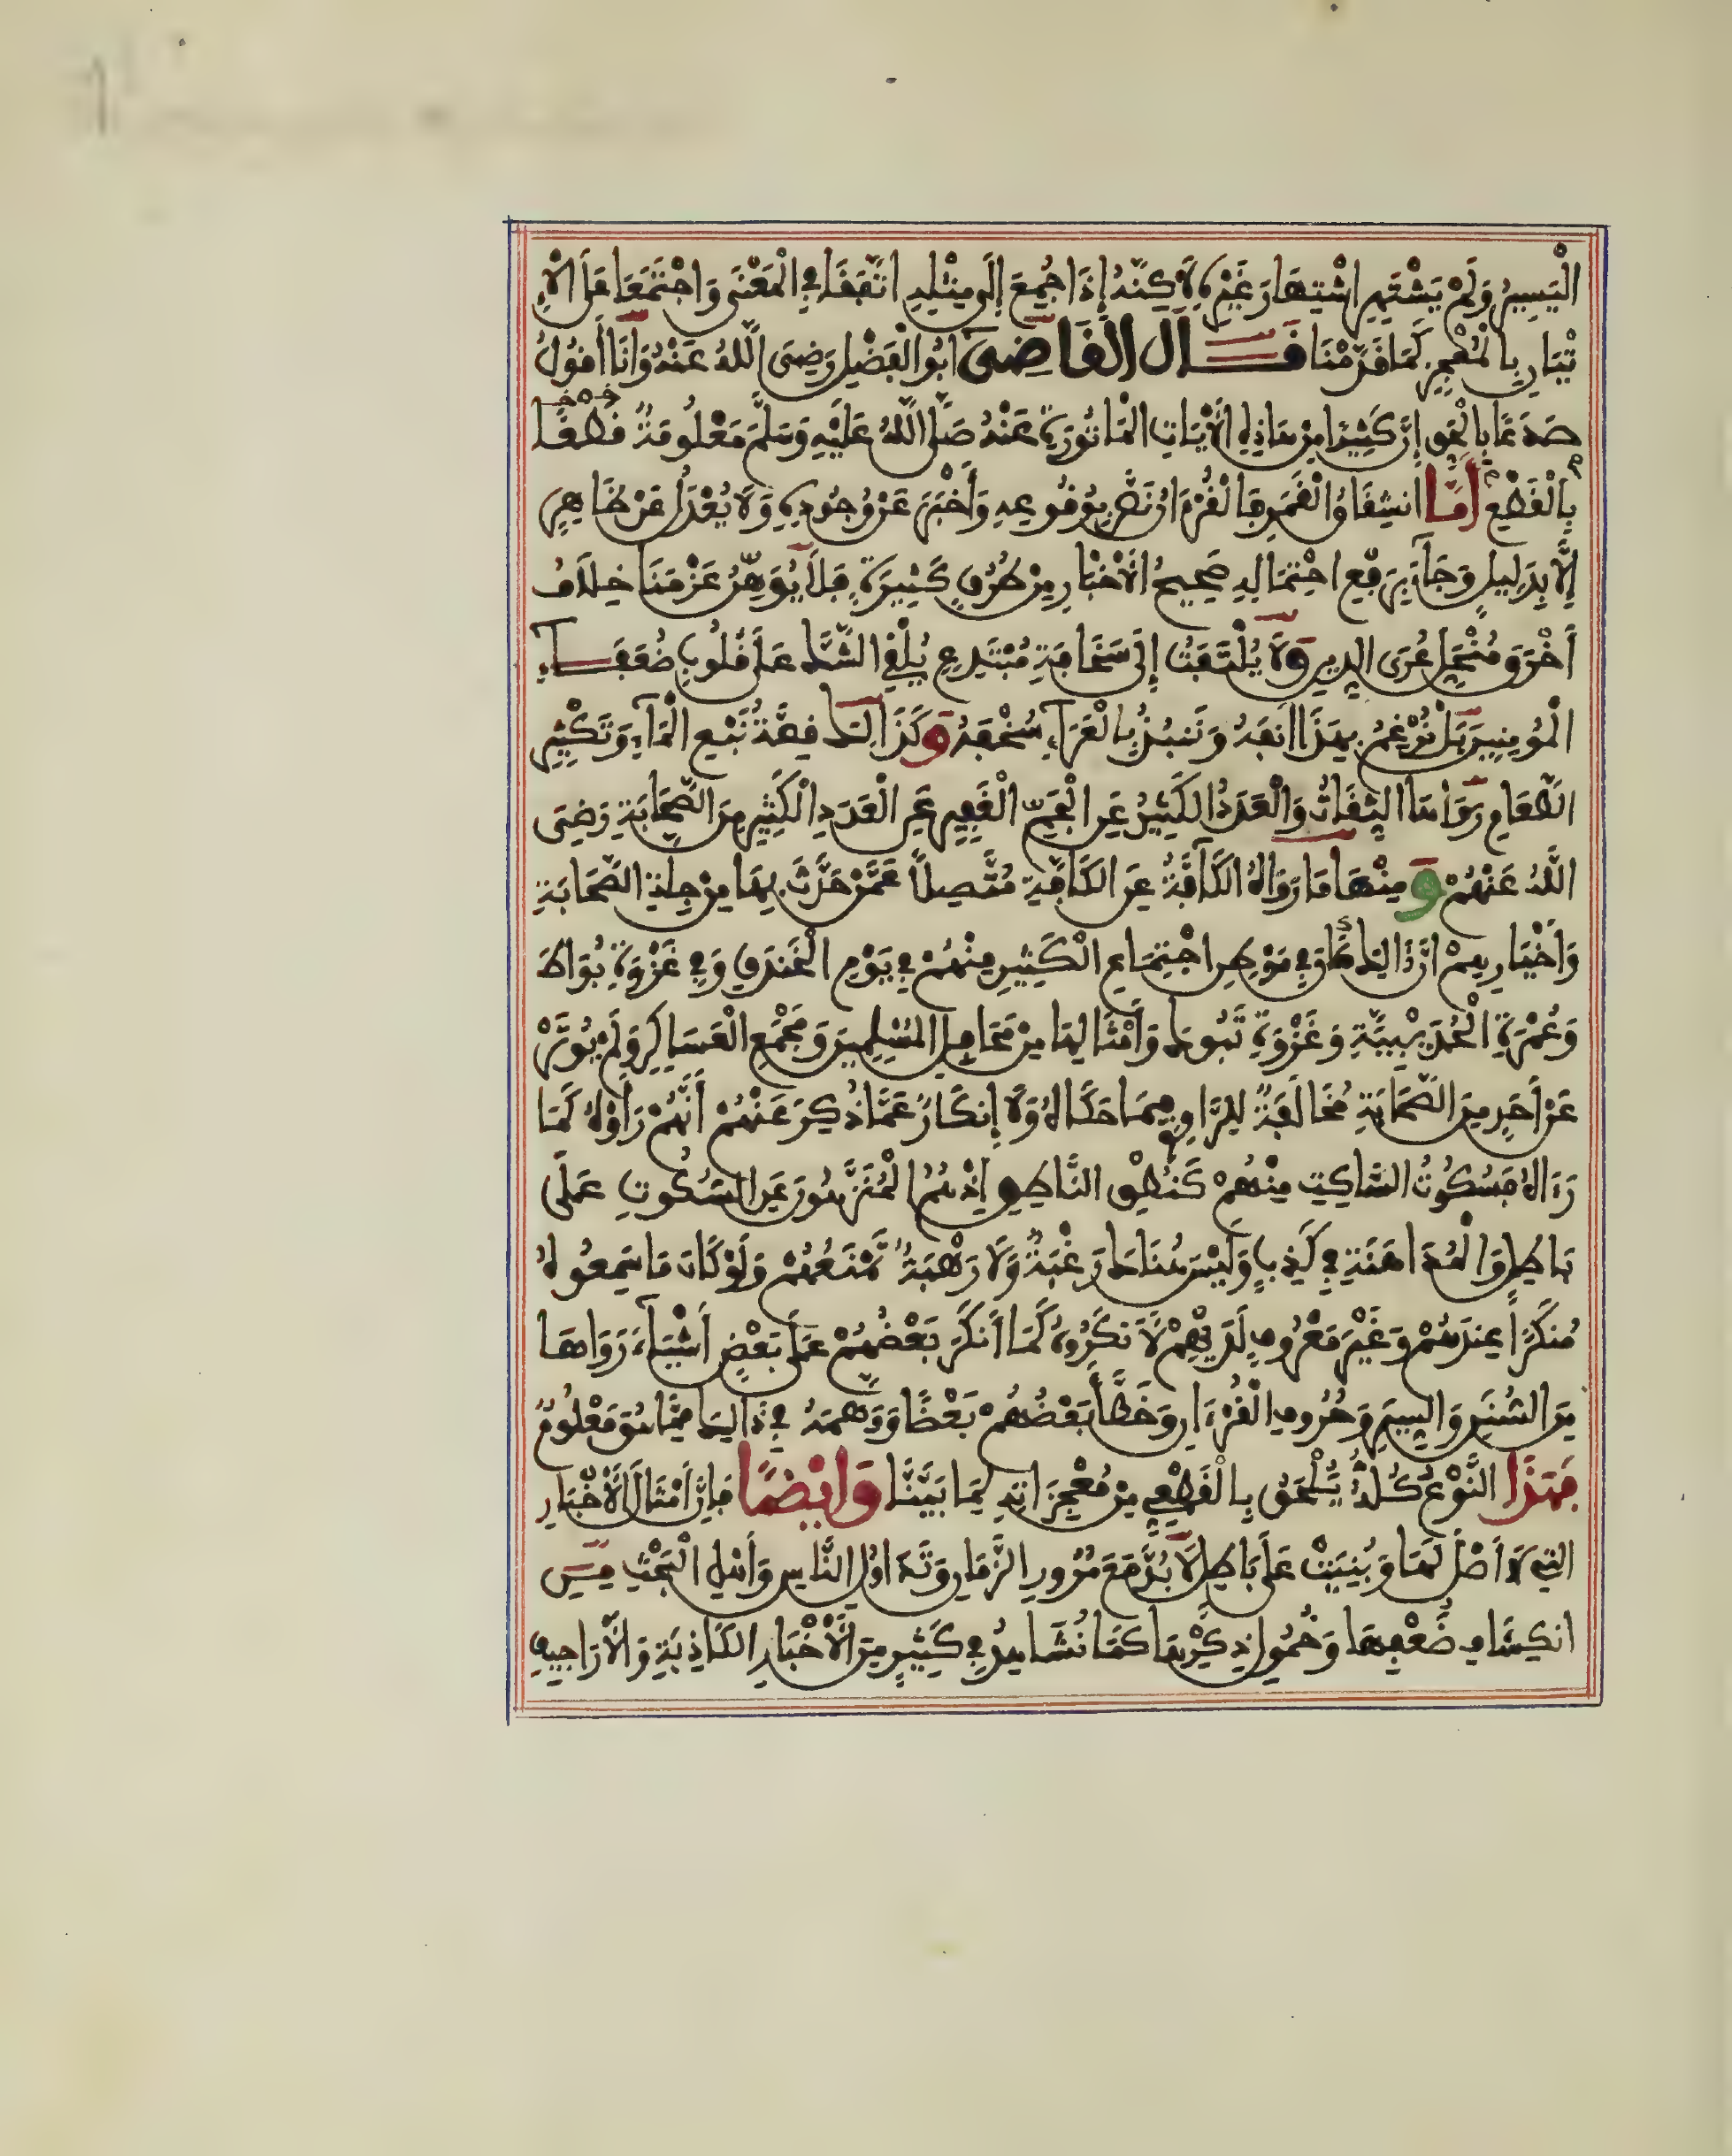 الْيَسِيرُ وَلَمْ يَشْتَهِرِ اشْتِهَارَ غَيْرِهِ لَاكِنَّهُ إِذَا جُمِعَ إِلَى مِثْلِهِ اتَّفَقَا فِي الْمَعْنَى وَاجْتَمَعَا عَلَى الْإِ
تْيَانِ بِالْمُعْجِزِ كَمَا قَدَّمْنَا قَالَ الْقَاضِي أَبُو الْفَضْلِ رَضِيَ اللَّهُ عَنْهُ وَأَنَا أَقُولُ
صَدْعًا بِالْحَقِّ إِنَّ كَثِيرًا مِنْ هَاذِهِ الْآيَاتِ الْمَاثُورَةِ عَنْهُ صَلَّى اللَّهُ عَلَيْهِ وَسَلَّمَ مَعْلُومَةٌ قَطْعًا
بِالْقَطْعِ أَمَّا انْشِقَاقُ الْقَمَرِ فَالْقُرْءَانُ نَصَّ بِوُقُوعِهِ وَأَخْبَرَ عَنْ وُجُودِهِ وَلَا يُعْدَلُ عَنْ ظَاهِرٍ
إِلَّا بِدَلِيلٍ وَجَاءَ بِرَفْعِ احْتِمَالِهِ صَحِيحُ الْأَخْبَارِ مِنْ طُرُقٍ كَثِيرَةٍ فَلَا يُوَهِّنُ عَزْمَنَا خِلَافُ
أَخْرَقَ مُنْحَلِّ عُرَى الدِّينِ وَلَا يُلْتَفَتُ إِلَى سَخَافَةِ مُبْتَدِعٍ يُلْقِي الشَّكَّ عَلَى قُلُوبِ ضُعَفَاءِ
الْمُومِنِينَ بَلْ نُرْغِمُ بِهَذَا أَنْفَهُ وَنَنْبُذُ بِالْعَرَاءِ سُخْفَهُ وَكَذَالِكَ قِصَّةُ نَبْعِ الْمَاءِ وَتَكْثِيرِ
الطَّعَامِ رَوَاهَا الثِّقَاتُ وَالْعَدَدُ الْكَثِيرُ عَنِ الْجَمِّ الْغَفِيرِ عَنِ الْعَدَدِ الْكَثِيرِ مِنَ الصَّحَابَةِ رَضِيَ
اللَّهُ عَنْهُمْ وَمِنْهَا مَا رَوَاهُ الْكَافَّةُ عَنِ الْكَافَّةِ مُتَّصِلًا عَمَّنْ حَدَّثَ بِهَا مِنْ جِلَّةِ الصَّحَابَةِ
وَأَخْبَارِهِمْ أَنَّ ذَالِكَ كَانَ فِي مَوْطِنِ اجْتِمَاعِ الْكَثِيرِ مِنْهُمْ فِي يَوْمِ الْخَنْدَقِ وَفِي غَزْوَةِ بُوَاطَ
وَعُمْرَةِ الْحُدَيْبِيَّةِ وَغَزْوَةِ تَبُوكَ وَأَمْثَالِهَا مِنْ مَحَافِلِ الْمُسْلِمِينَ وَمَجْمَعِ الْعَسَاكِرِ وَلَمْ يُوثَرْ
عَنْ أَحَدٍ مِنَ الصَّحَابَةِ مُخَالَفَةٌ لِلرَّاوِي فِيمَا حَكَاهُ وَلَا إِنْكَارٌ عَمَّا ذُكِرَ عَنْهُمْ أَنَّهُمْ رَأَوْهُ كَمَا
رَءَاهُ فَسُكُوتُ السَّاكِتِ مِنْهُمْ كَنُطْقِ النَّاطِقِ إِذْ هُمُ الْمُنَزَّهُونَ عَنِ السُّكُوتِ عَلَى
بَاطِلٍ وَالْمُدَاهَنَةِ فِي كَذِبٍ وَلَيْسَ هُنَاكَ رَغْبَةٌ وَلَا رَهْبَةٌ تَمْنَعُهُمْ وَلَوْ كَانَ مَا سَمِعُوهُ
مُنْكَرًا عِنْدَهُمْ وَغَيْرَ مَعْرُوفٍ لَدَيْهِمْ لَأَنْكَرُوهُ كَمَا أَنْكَرَ بَعْضُهُمْ عَلَى بَعْضٍ أَشْيَاءَ رَوَاهَا
مِنَ السُّنَنِ وَالسِّيَرِ وَحُرُوفِ الْقُرْءَانِ وَخَطَّأَ بَعْضُهُمْ بَعْضًا وَوَهَّمَهُ فِي ذَالِكَ مِمَّا هُوَ مَعْلُومٌ
فَهَذَا النَّوْعُ كُلُّهُ يُلْحَقُ بِالْقَطْعِيِّ مِنْ مُعْجِزَاتِهِ لِمَا بَيَّنَّا وَأَيْضًا فَإِنَّ أَمْثَالَ الْأَخْبَارِ
الَّتِي لَا أَصْلَ لَهَا وَبُنِيَتْ عَلَى بَاطِلٍ لَا بُدَّ مَعَ مُرُورِ الزَّمَانِ وَتَدَاوُلِ النَّاسِ وَأَهْلِ الْبَحْثِ مِنَ
انْكِشَافِ ضُعْفِهَا وَخُمُولِ ذِكْرِهَا كَمَا نُشَاهِدُ فِي كَثِيرٍ مِنَ الْأَخْبَارِ الْكَاذِبَةِ وَالْأَرَاجِيفِ